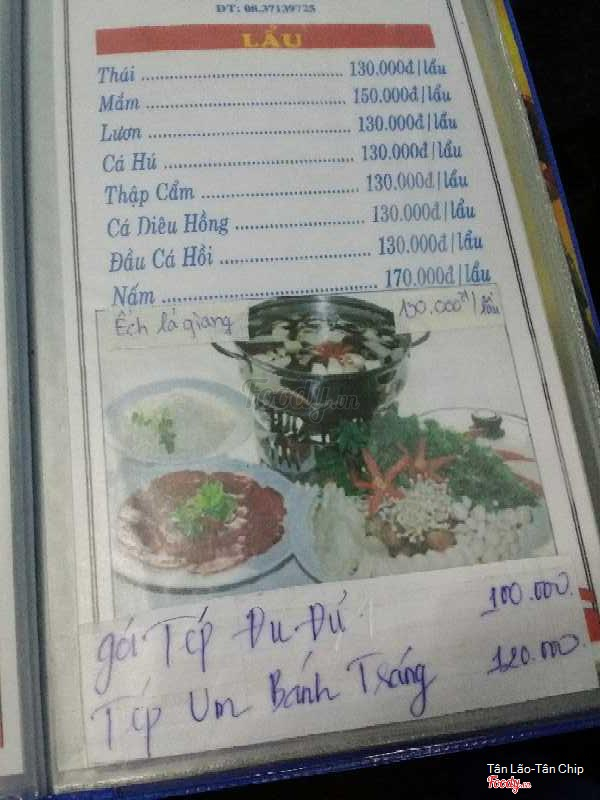 ĐT: 08.37139725
LẨU
Thái ........ 130.000đ/lẩu
Mắm ........ 150.000đ/lẩu
Lươn ........ 130.000đ/lẩu
Cá Hú ........ 130.000đ/lẩu
Thập Cẩm ........ 130.000đ/lẩu
Cá Diêu Hồng ........ 130.000đ/lẩu
Đầu Cá Hồi ........ 130.000đ/lẩu
Nấm ........ 170.000đ/lẩu
Ếch lá giang 130.000đ/lẩu
Foody.vn
gỏi Tép Đu Đủ 100.000
Tép Um Bánh Tráng 120.000
Tân Lão-Tân Chip
Foody.vn